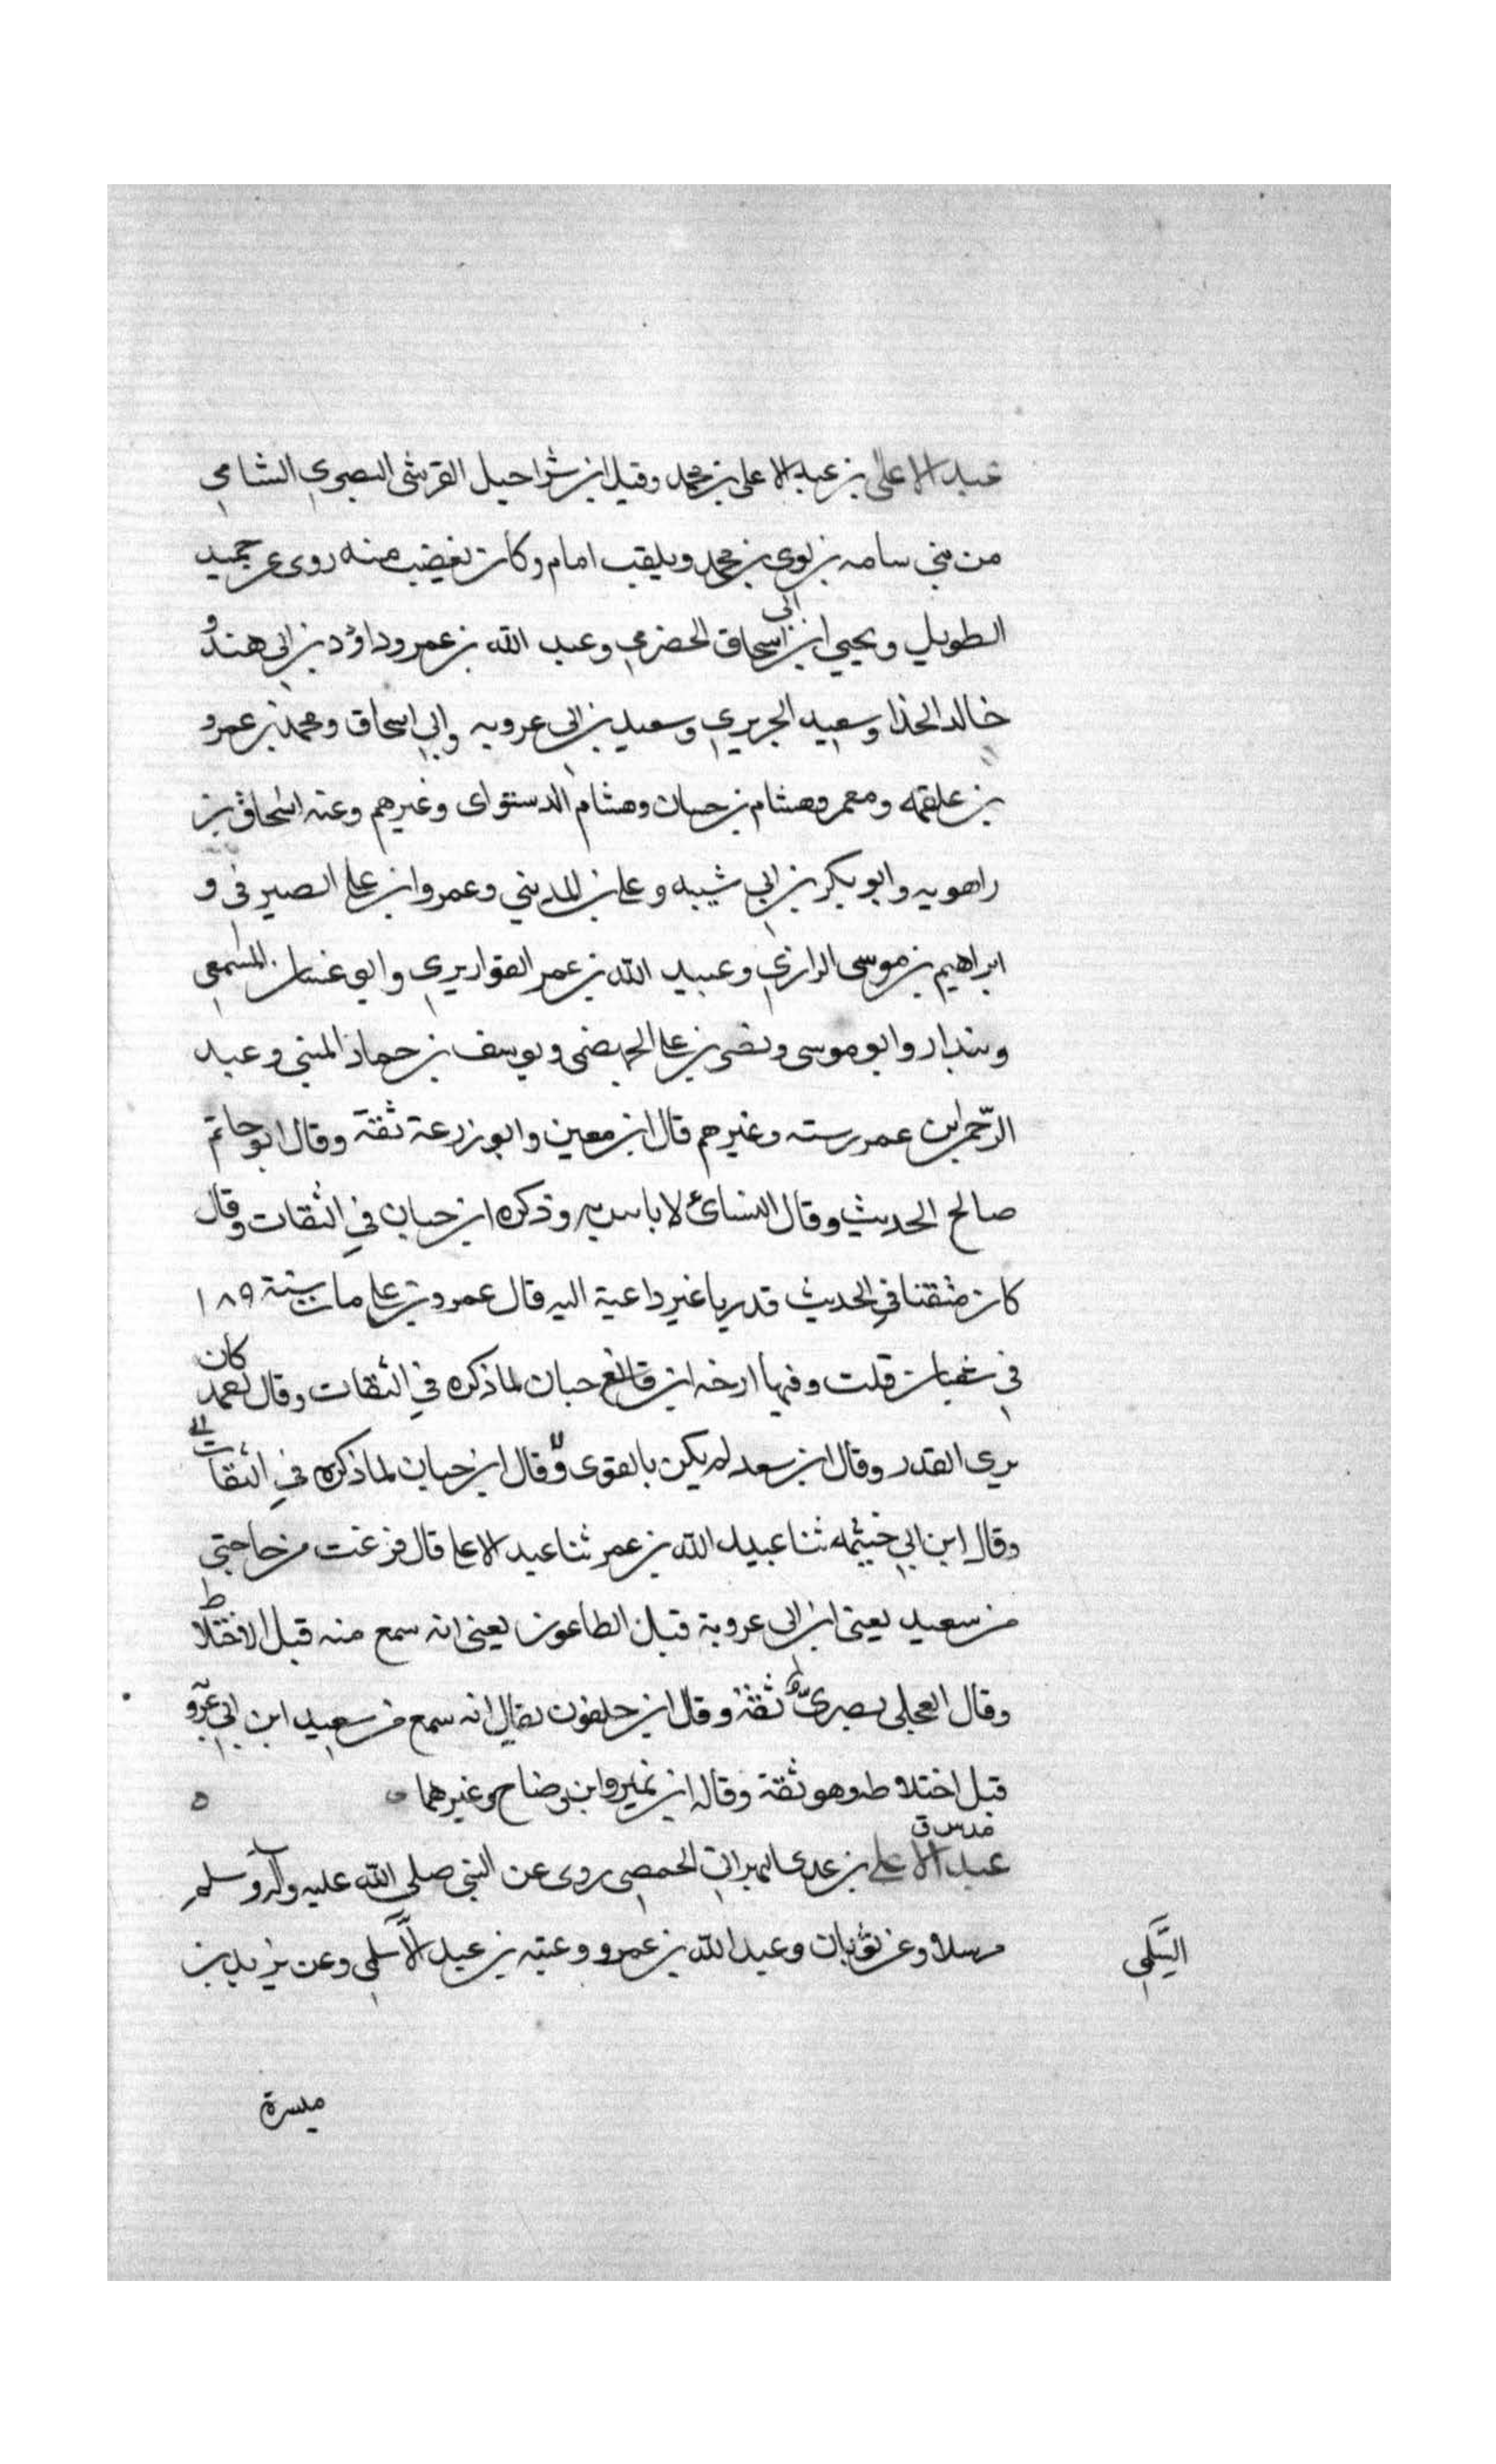 عبد الاعلى بن عبد الاعلى بن محمد وقيل ابن شراحيل القرشى البصري الشامي
من بني سامه بن لوى بن محمد ويلقب امام وكان يغضب منه روى عن حميد
الطويل ويحيى ابن ابى اسحاق الحضرمي وعبد الله بن عمر وداؤد بن ابى هند و
خالد الحذا وسعيد الجريري وسعيد بن ابى عروبه وابي اسحاق ومحمد بن عمرو
بن علقمه ومعمر وهشام بن حسان وهشام الدستواى وغيرهم وعنه اسحاق بن
راهويه وابو بكر بن ابي شيبه وعلى بن المديني وعمرو ابن على الصيرفى و
ابراهيم بن موسى الرازي وعبيد الله بن عمر القواريري وابي غسان المسمعي
وبندار وابو موسى ونصر بن على الجهضمى ويوسف بن حماد المعنى وعبد
الرحمن ابن عمر رسته وغيرهم قال ابن معين وابو زرعة ثقة وقال ابو حاتم
صالح الحديث وقال النسائ لا باس به وذكره ابن حبان في الثقات وقال
كان متقنا في الحديث قدريا غير داعية اليه قال عمرو بن على مات سنة ١٨٩
في شعبان قلت وفيها ارخه ابن قانع حبان لما ذكره في الثقات وقال احمد كان
يرى القدر وقال ابن سعد لم يكن بالقوى وقال ابن حبان لما ذكره في الثقات
وقال ابن ابي خيثمه ثنا عبيد الله بن عمر ثنا عبد الاعلى قال فرغت من حاجتى
من سعيد يعنى ابن ابى عروبة قبل الطاعون يعنى انه سمع منه قبل الاختلاط
وقال العجلى بصرى ثقة وقال ابن خلفون يقال انه سمع من سعيد ابن ابى عرو
قبل اختلاطه وهو ثقة وقاله ابن نمير وابن وضاح وغيرهما
مد س ق
عبد الاعلى بن عدى البهرانى الحمصى روى عن النبى صلى الله عليه وآله وسلم
مرسلا وعن ثوبان وعبد الله بن عمرو وعتبه بن عبد الاسلمى وعن يزيد بن
السلمى
ميسرة